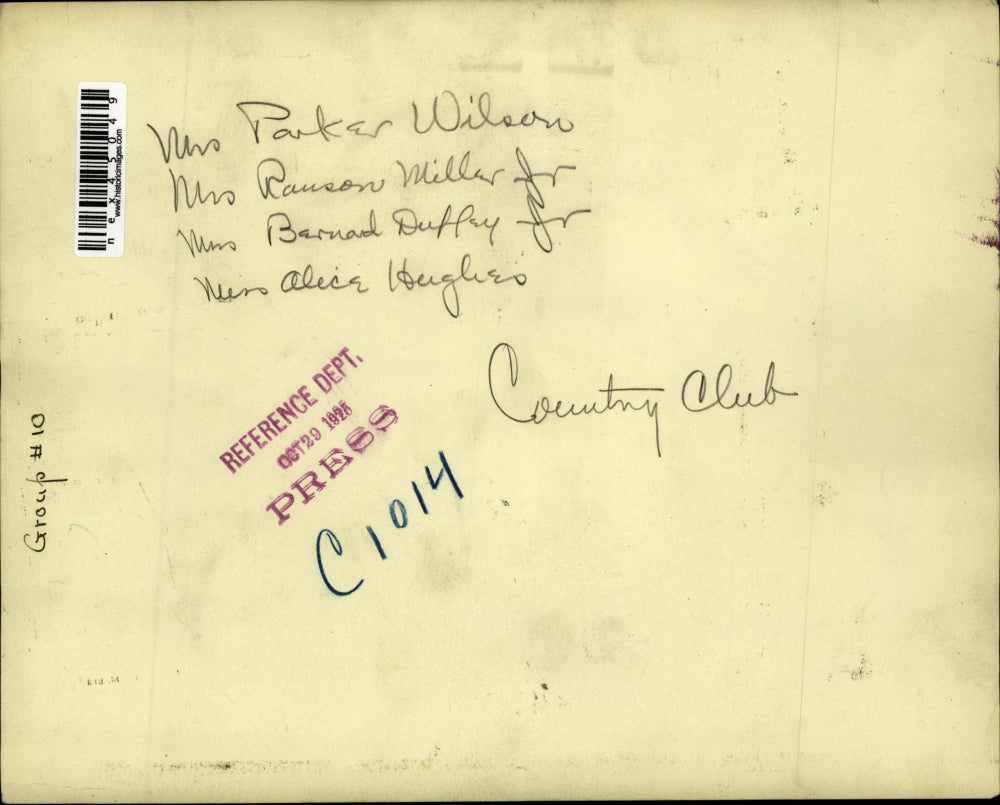 Mrs Parker Wilson
Mrs Ranson Miller Jr
Mrs Bernad Duffey Jr
Miss Alice Hughes
Country Club
REFERENCE DEPT.
OCT 29 1926
PRESS
C1014
Group #10
nex45049
www.historicimages.com